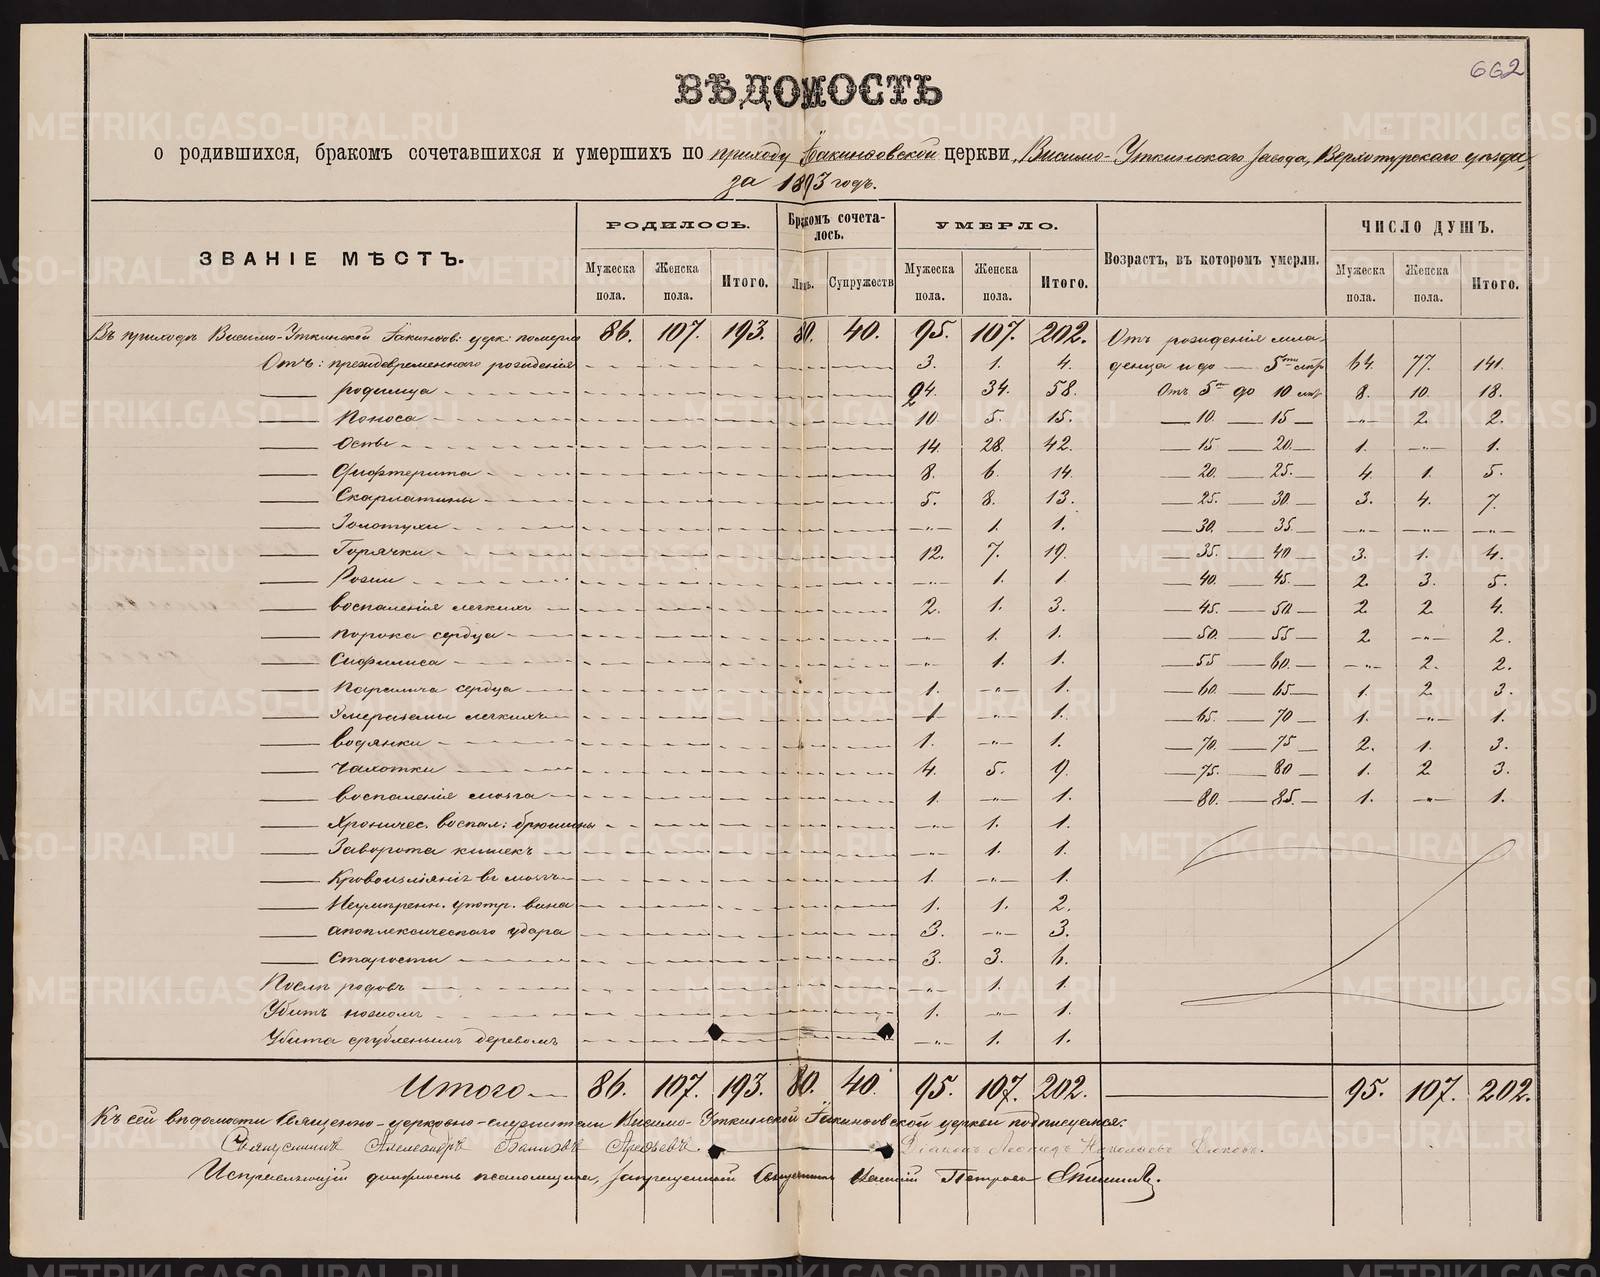 662
ВѢДОМОСТЬ
о родившихся, бракомъ сочетавшихся и умершихъ по приходу Іакинѳовской церкви, Висимо-Уткинскаго завода, Верхотурскаго уѣзда,
за 1893 годъ.
ЗВАНІЕ МѢСТЪ. РОДИЛОСЬ. Бракомъ сочета- УМЕРЛО. Возрастъ, въ которомъ умерли. ЧИСЛО ДУШЪ.
лось.
Мужеска пола. Женска пола. Итого. Лицъ. Супружествъ Мужеска пола. Женска пола. Итого. Мужеска пола. Женска пола. Итого.
Въ приходѣ Висимо-Уткинской Іакинѳов: церк: померло 86. 107. 193. 80. 40. 95. 107. 202. Отъ рожденія мла-
Отъ: преждевременнаго рожденія 3. 1. 4. денца и до — 5ти лѣтъ 64. 77. 141.
— родимца 24. 34. 58. Отъ 5ти до 10 лѣтъ 8. 10. 18.
— Поноса 10. 5. 15. — 10. — 15 — -„- 2. 2.
— Оспы 14. 28. 42. — 15 — 20. — 1. -„- 1.
— Дифтерита 8. 6. 14. — 20. — 25. — 4. 1. 5.
— Скарлатины 5. 8. 13. — 25. — 30 — 3. 4. 7.
— Золотухи -„- 1. 1. — 30. — 35. — -„- -„- -„-
— Горячки 12. 7. 19. — 35. — 40 — 3. 1. 4.
— Рожи -„- 1. 1. — 40. — 45. — 2. 3. 5.
— воспаленія легкихъ 2. 1. 3. — 45. — 50. — 2 2 4.
— порока сердца -„- 1. 1. — 50. — 55 — 2 -„- 2.
— Сифилиса -„- 1. 1. — 55 — 60. — -„- 2. 2.
— Паралича сердца 1. „ 1. — 60. — 65 — 1. 2 3.
— легкихъ 1 -„- 1. — 65. — 70 — 1. -„- 1.
— водянки 1. -„- 1. — 70. — 75 — 2. 1. 3.
— Чахотки 4. 5. 9. — 75. — 80 — 1. 2 3.
— воспаленія мозга 1. -„- 1. — 80. — 85. — 1. -„- 1.
— Хроничес. воспал: брюшины -„- 1. 1.
— Заворота кишекъ -„- 1. 1.
— Кровоизліянія въ мозгъ 1. -„- 1.
— Неумѣренн. употр. вина 1. 1. 2.
— апоплексическаго удара 3. -„- 3.
— Старости 3. 3. 6.
Послѣ родовъ -„- 1. 1.
Убитъ ножомъ 1. -„- 1.
Убита срубленымъ деревомъ -„- 1. 1.
Итого — 86. 107. 193. 80. 40. 95. 107. 202. — 95. 107. 202.
Къ сей вѣдомости Священно-церковно-служители Висимо-Уткинской Іакинѳовской церкви подписуемся:
Священникъ Александръ Арефьевъ. Діаконъ Леонидъ Николаевъ
Исправляющій должность псаломщика, запрещенный Священникъ Петровъ
METRIKI.GASO-URAL.RU